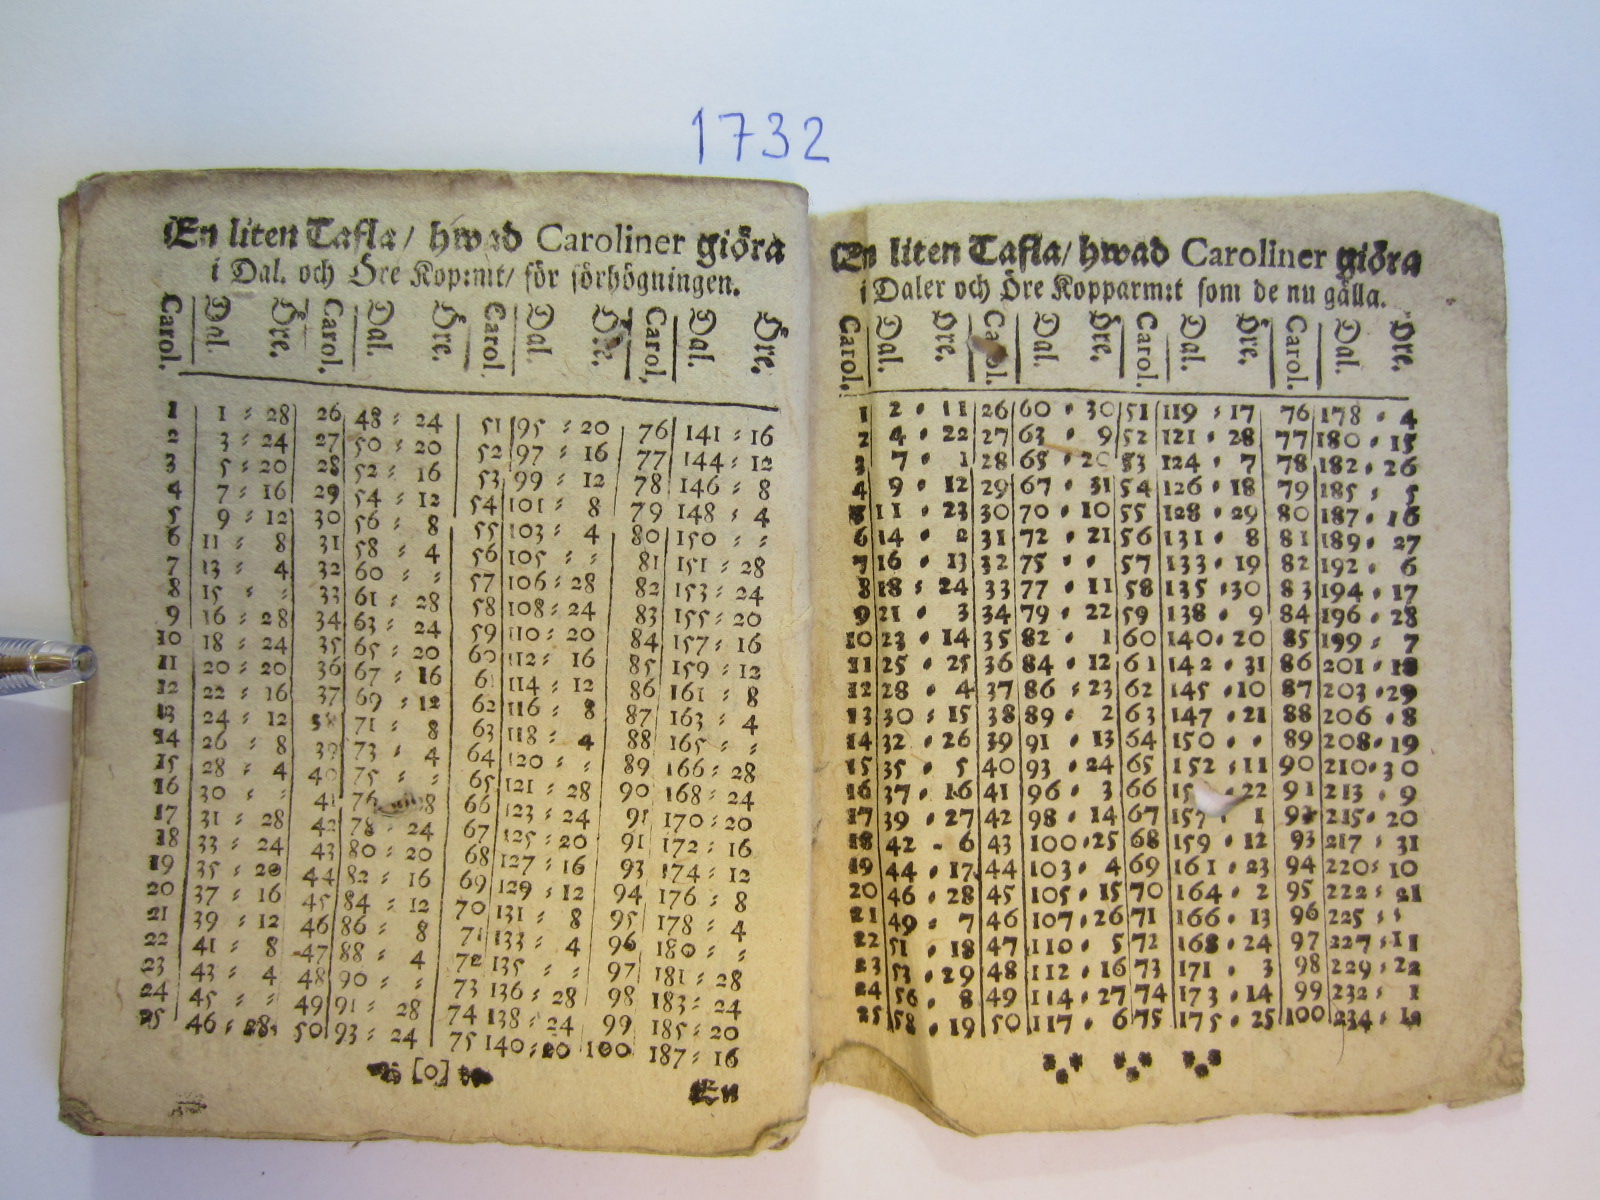 1732
En liten Tafla/ hwad Caroliner giöra
i Dal. och Öre Kop:mt/ för förhögningen.
Carol. Dal. Öre. Carol. Dal. Öre. Carol. Dal. Öre. Carol. Dal. Öre.
1 1 = 28 26 48 = 24 51 95 = 20 76 141 = 16
2 3 = 24 27 50 = 20 52 97 = 16 77 144 = 12
3 5 = 20 28 52 = 16 53 99 = 12 78 146 = 8
4 7 = 16 29 54 = 12 54 101 = 8 79 148 = 4
5 9 = 12 30 56 = 8 55 103 = 4 80 150 = =
6 11 = 8 31 58 = 4 56 105 = = 81 151 = 28
7 13 = 4 32 60 = = 57 106 = 28 82 153 = 24
8 15 = = 33 61 = 28 58 108 = 24 83 155 = 20
9 16 = 28 34 63 = 24 59 110 = 20 84 157 = 16
10 18 = 24 35 65 = 20 60 112 = 16 85 159 = 12
11 20 = 20 36 67 = 16 61 114 = 12 86 161 = 8
12 22 = 16 37 69 = 12 62 116 = 8 87 163 = 4
13 24 = 12 38 71 = 8 63 118 = 4 88 165 = =
14 26 = 8 39 73 = 4 64 120 = = 89 166 = 28
15 28 = 4 40 75 = = 65 121 = 28 90 168 = 24
16 30 = = 41 76 28 66 123 = 24 91 170 = 20
17 31 = 28 42 78 = 24 67 125 = 20 91 172 = 16
18 33 = 24 43 80 = 20 68 127 = 16 93 174 = 12
19 35 = 20 44 82 = 16 69 129 = 12 94 176 = 8
20 37 = 16 45 84 = 12 70 131 = 8 95 178 = 4
21 39 = 12 46 86 = 8 71 133 = 4 96 180 = =
22 41 = 8 47 88 = 4 72 135 = = 97 181 = 28
23 43 = 4 48 90 = = 73 136 = 28 98 183 = 24
24 45 = = 49 91 = 28 74 138 = 24 99 185 = 20
25 46 = 28 50 93 = 24 75 140 = 20 100 187 = 16
[o]
En
En liten Tafla/ hwad Caroliner giöra
i Daler och Öre Kopparm:t som de nu gälla.
Carol. Dal. Öre. Carol. Dal. Öre. Carol. Dal. Öre. Carol. Dal. Öre.
1 2 = 11 26 60 = 30 51 119 = 17 76 178 = 4
2 4 = 22 27 63 = 9 52 121 = 28 77 180 = 15
3 7 = 1 28 65 = 20 53 124 = 7 78 182 = 26
4 9 = 12 29 67 = 31 54 126 = 18 79 185 = 5
5 11 = 23 30 70 = 10 55 128 = 29 80 187 = 16
6 14 = 2 31 72 = 21 56 131 = 8 81 189 = 27
7 16 = 13 32 75 = = 57 133 = 19 82 192 = 6
8 18 = 24 33 77 = 11 58 135 = 30 83 194 = 17
9 21 = 3 34 79 = 22 59 138 = 9 84 196 = 28
10 23 = 14 35 82 = 1 60 140 = 20 85 199 = 7
11 25 = 25 36 84 = 12 61 142 = 31 86 201 = 18
12 28 = 4 37 86 = 23 62 145 = 10 87 203 = 29
13 30 = 15 38 89 = 2 63 147 = 21 88 206 = 8
14 32 = 26 39 91 = 13 64 150 = = 89 208 = 19
15 35 = 5 40 93 = 24 65 152 = 11 90 210 = 30
16 37 = 16 41 96 = 3 66 22 91 213 = 9
17 39 = 27 42 98 = 14 67 157 = 1 92 215 = 20
18 42 = 6 43 100 = 25 68 159 = 12 93 217 = 31
19 44 = 17 44 103 = 4 69 161 = 23 94 220 = 10
20 46 = 28 45 105 = 15 70 164 = 2 95 222 = 21
21 49 = 7 46 107 = 26 71 166 = 13 96 225 = =
22 51 = 18 47 110 = 5 72 168 = 24 97 227 = 11
23 53 = 29 48 112 = 16 73 171 = 3 98 229 = 22
24 56 = 8 49 114 = 27 74 173 = 14 99 232 = 1
25 58 = 19 50 117 = 6 75 175 = 25 100 234 = 12